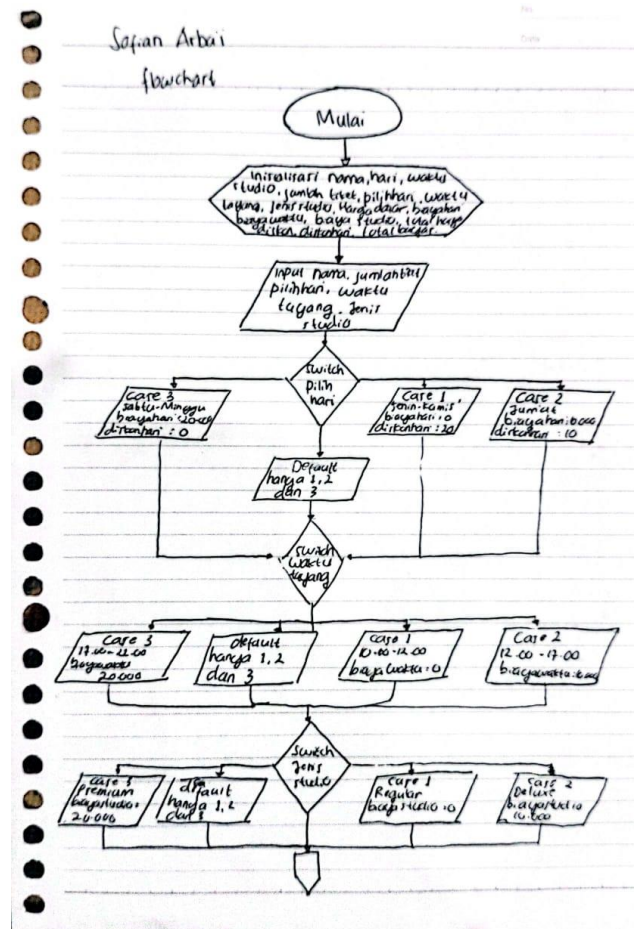 Sofian Arba'i
flowchart
Mulai
Inisialisasi nama, hari, waktu
studio, jumlah tiket, pilihhari, waktu
tayang, jenis studio, Harga dasar, biayahari
biayawaktu, biaya studio, total harga
diskon, diskonhari, total bayar
Input nama, jumlah tiket
pilihhari, waktu
tayang, Jenis
studio
Switch
pilih
hari
Case 3
Sabtu-Minggu
biayahari : 20.000
diskonhari : 0
Case 1
Senin-Kamis,
biayahari : 0
diskonhari : 20
Case 2
Jumat
biayahari :
diskonhari : 10
Default
hanya 1, 2
dan 3
Switch
waktu
tayang
Case 3
17.00 - 22.00
biayawaktu
20.000
default
hanya 1, 2
dan 3
Case 1
10.00 - 12.00
biayawaktu : 0
Case 2
12.00 - 17.00
biayawaktu :
Switch
Jenis
studio
Case 3
Premium
biayastudio :
20.000
default
hanya 1, 2
dan 3
Case 1
Regular
biayastudio : 0
Case 2
Deluxe
biayastudio
10.000